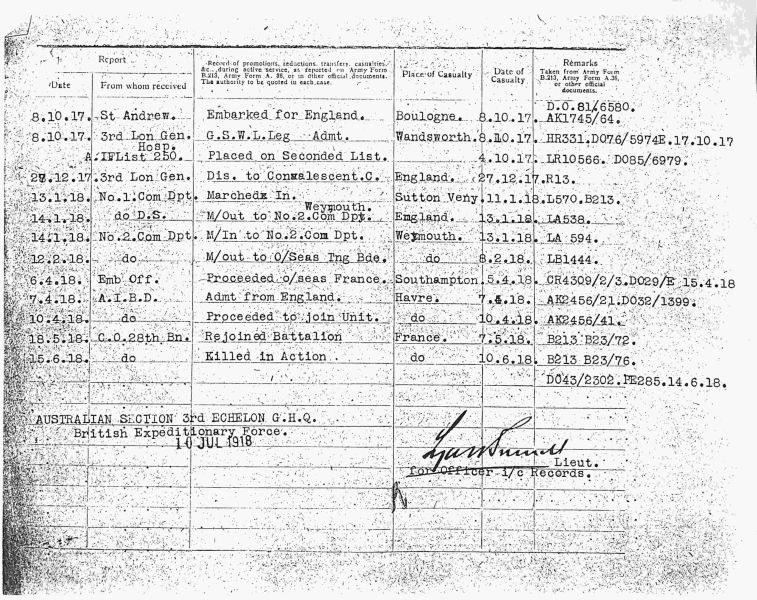 Report
Record of promotions, reductions, transfers, casualties, &c., during active service, as reported on Army Form B.213, Army Form A. 36, or in other official documents. The authority to be quoted in each case.
Place of Casualty
Date of Casualty
Remarks
Taken from Army Form B.213, Army Form A.36, or other official documents.
Date From whom received
D.O.81/6580.
8.10.17. St Andrew. Embarked for England. Boulogne. 8.10.17. AK1745/64.
8.10.17. 3rd Lon Gen. Hosp. G.S.W.L.Leg Admt. Wandsworth. 8.10.17. HR331.DO76/5974E.17.10.17
A.IFList 250. Placed on Seconded List. 4.10.17. LR10566. DO85/6979.
27.12.17. 3rd Lon Gen. Dis. to Convalescent.C. England. 27.12.17. R13.
13.1.18. No.1.Com Dpt. Marchedx In. Sutton Veny. 11.1.18. L570.B213.
Weymouth.
14.1.18. do D.S. M/Out to No.2.Com Dpt. England. 13.1.18. LA538.
14.1.18. No.2.Com Dpt. M/In to No.2.Com Dpt. Weymouth. 13.1.18. LA 594.
12.2.18. do M/out to O/Seas Tng Bde. do 8.2.18. LB1444.
6.4.18. Emb Off. Proceeded o/seas France. Southampton. 5.4.18. CR4309/2/3.DO29/E 15.4.18
7.4.18. A.I.B.D. Admt from England. Havre. 7.4.18. AK2456/21.DO32/1399.
10.4.18. do Proceeded to join Unit. do 10.4.18. AK2456/41.
18.5.18. C.O.28th Bn. Rejoined Battalion France. 7.5.18. B213 B23/72.
15.6.18. do Killed in Action. do 10.6.18. B213 B23/76.
DO43/2302.PE285.14.6.18.
AUSTRALIAN SECTION 3rd ECHELON G.H.Q.
British Expeditionary Force.
10 JUL 1918
Lieut.
for Officer i/c Records.